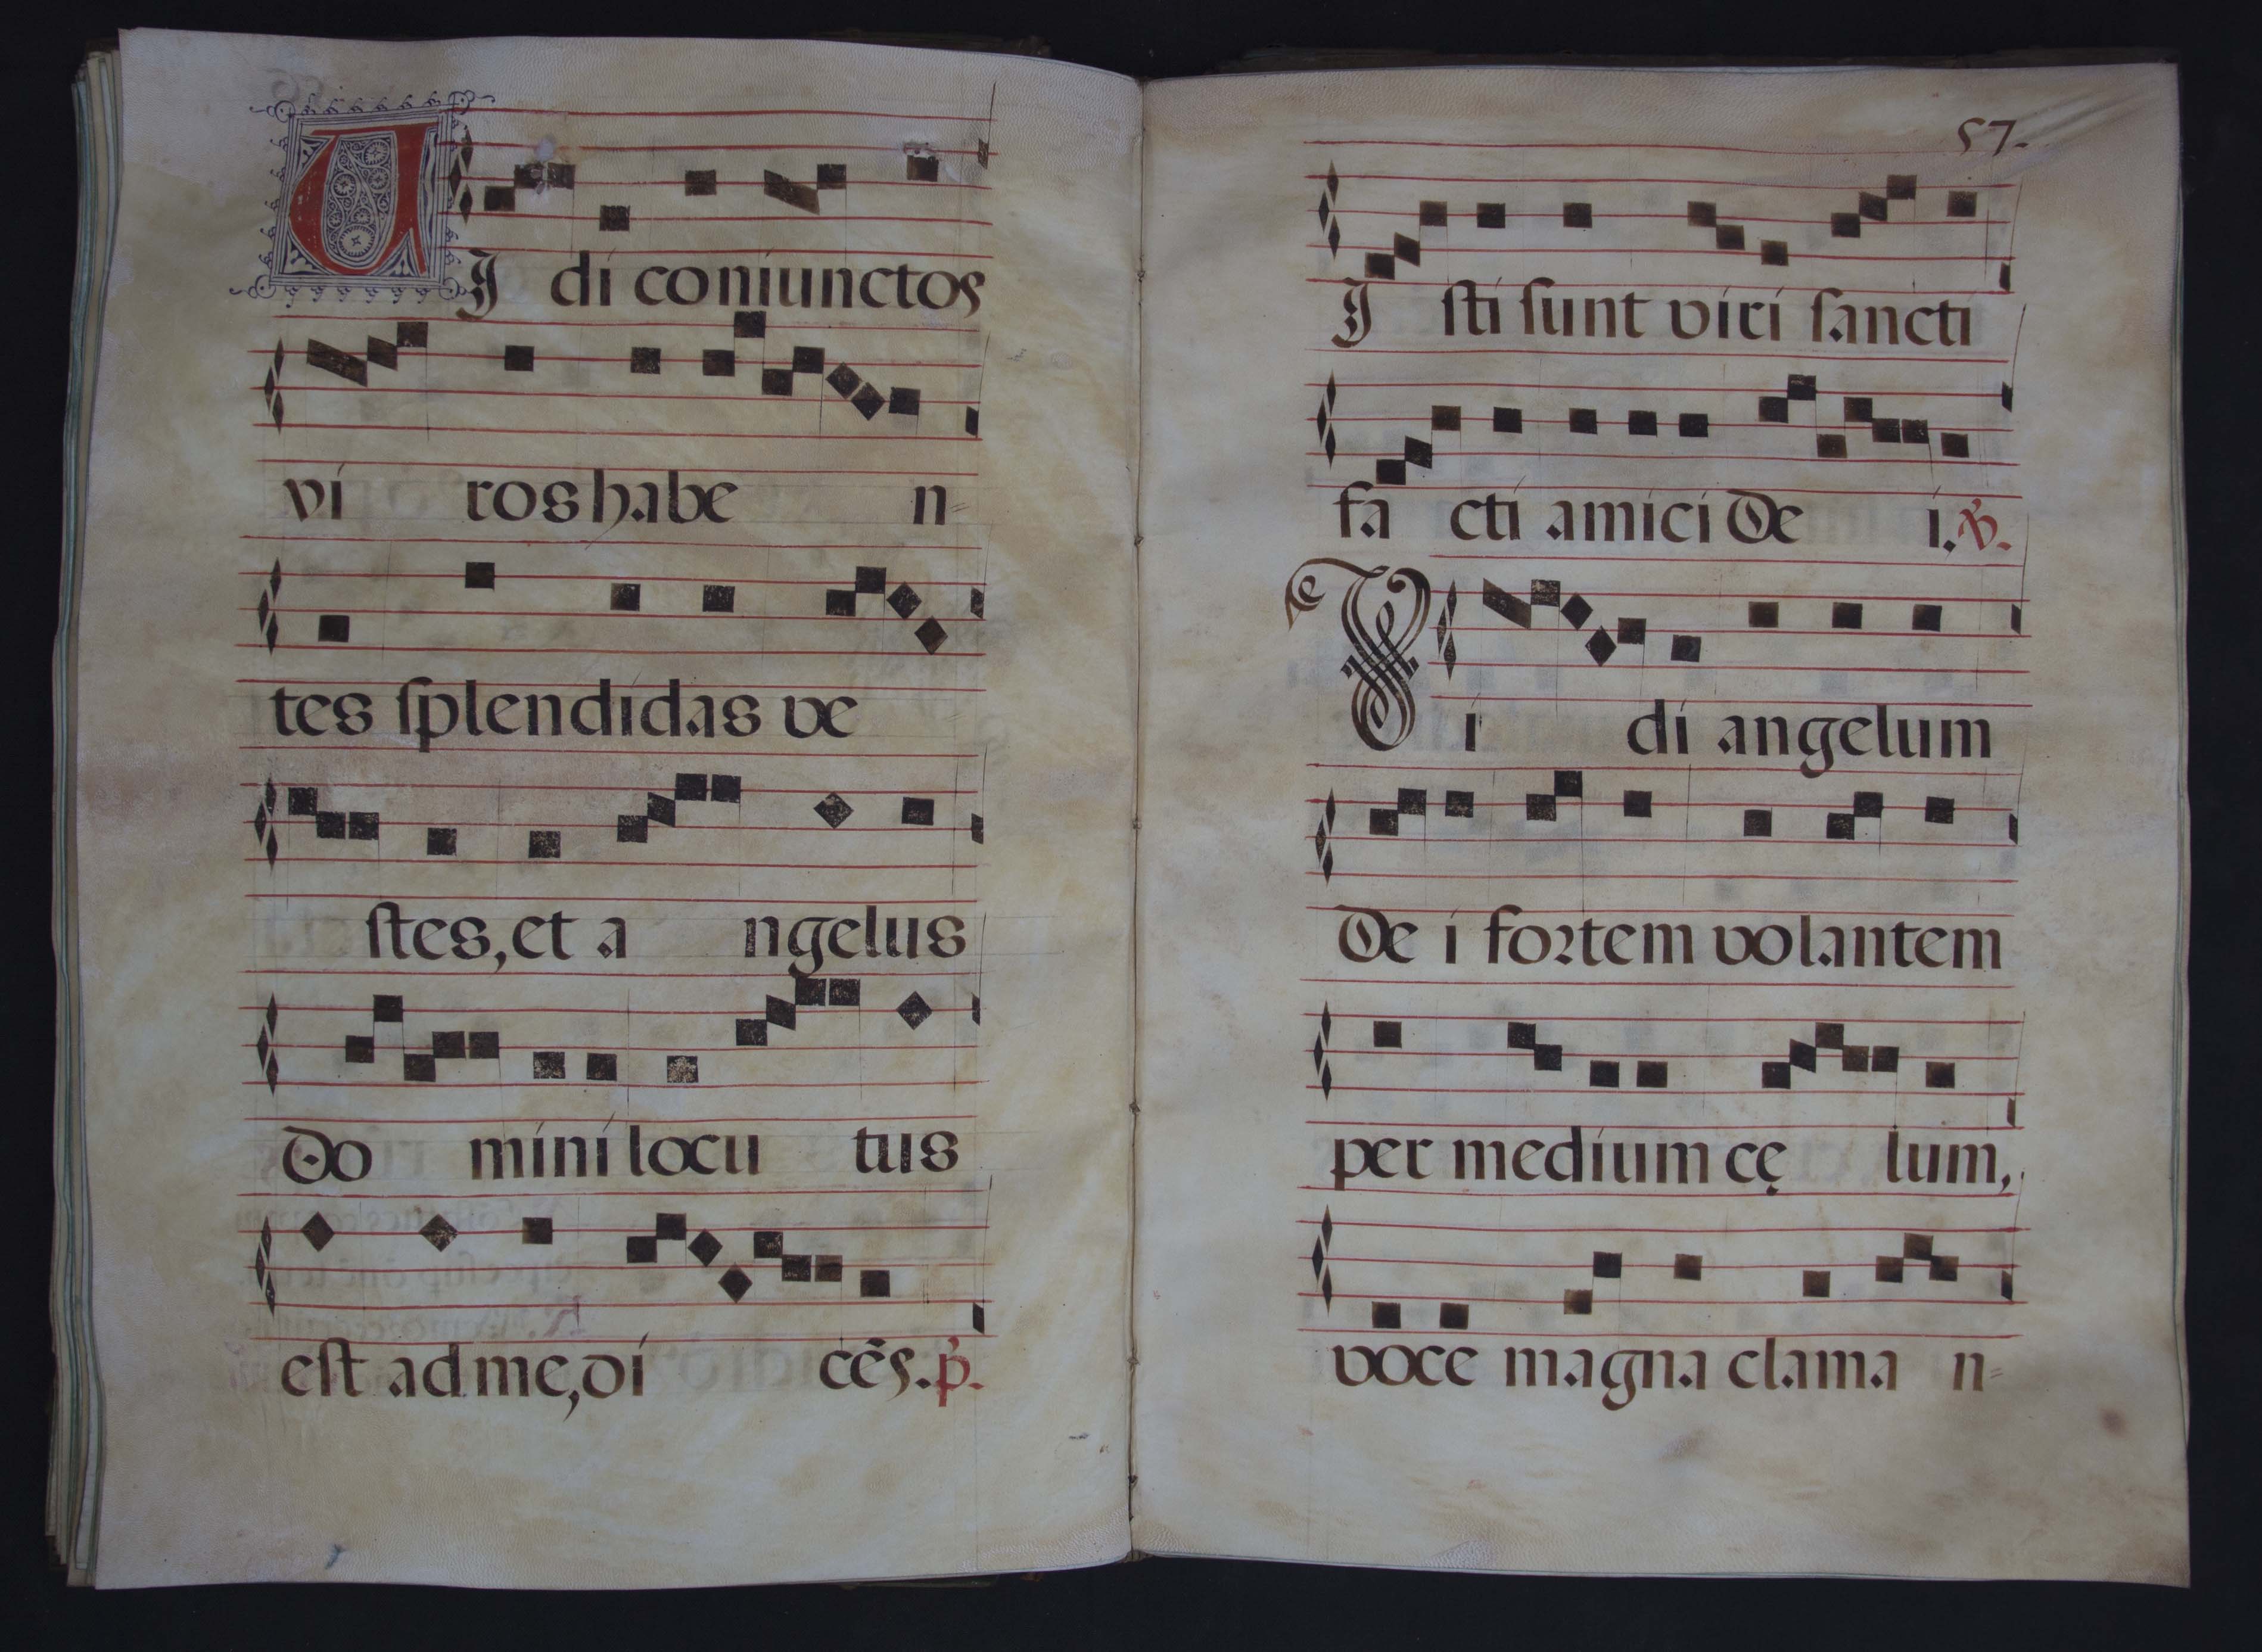 VI di coniunctos
vi ros habe n=
tes splendidas ve
stes, et a ngelus
Do mini locu tus
est ad me, di cēs. p̄.
57.
I sti sunt viri sancti
fa cti amici De i. ꝟ.
Vi di angelum
De i fortem volantem
per medium cę lum,
voce magna clama n=